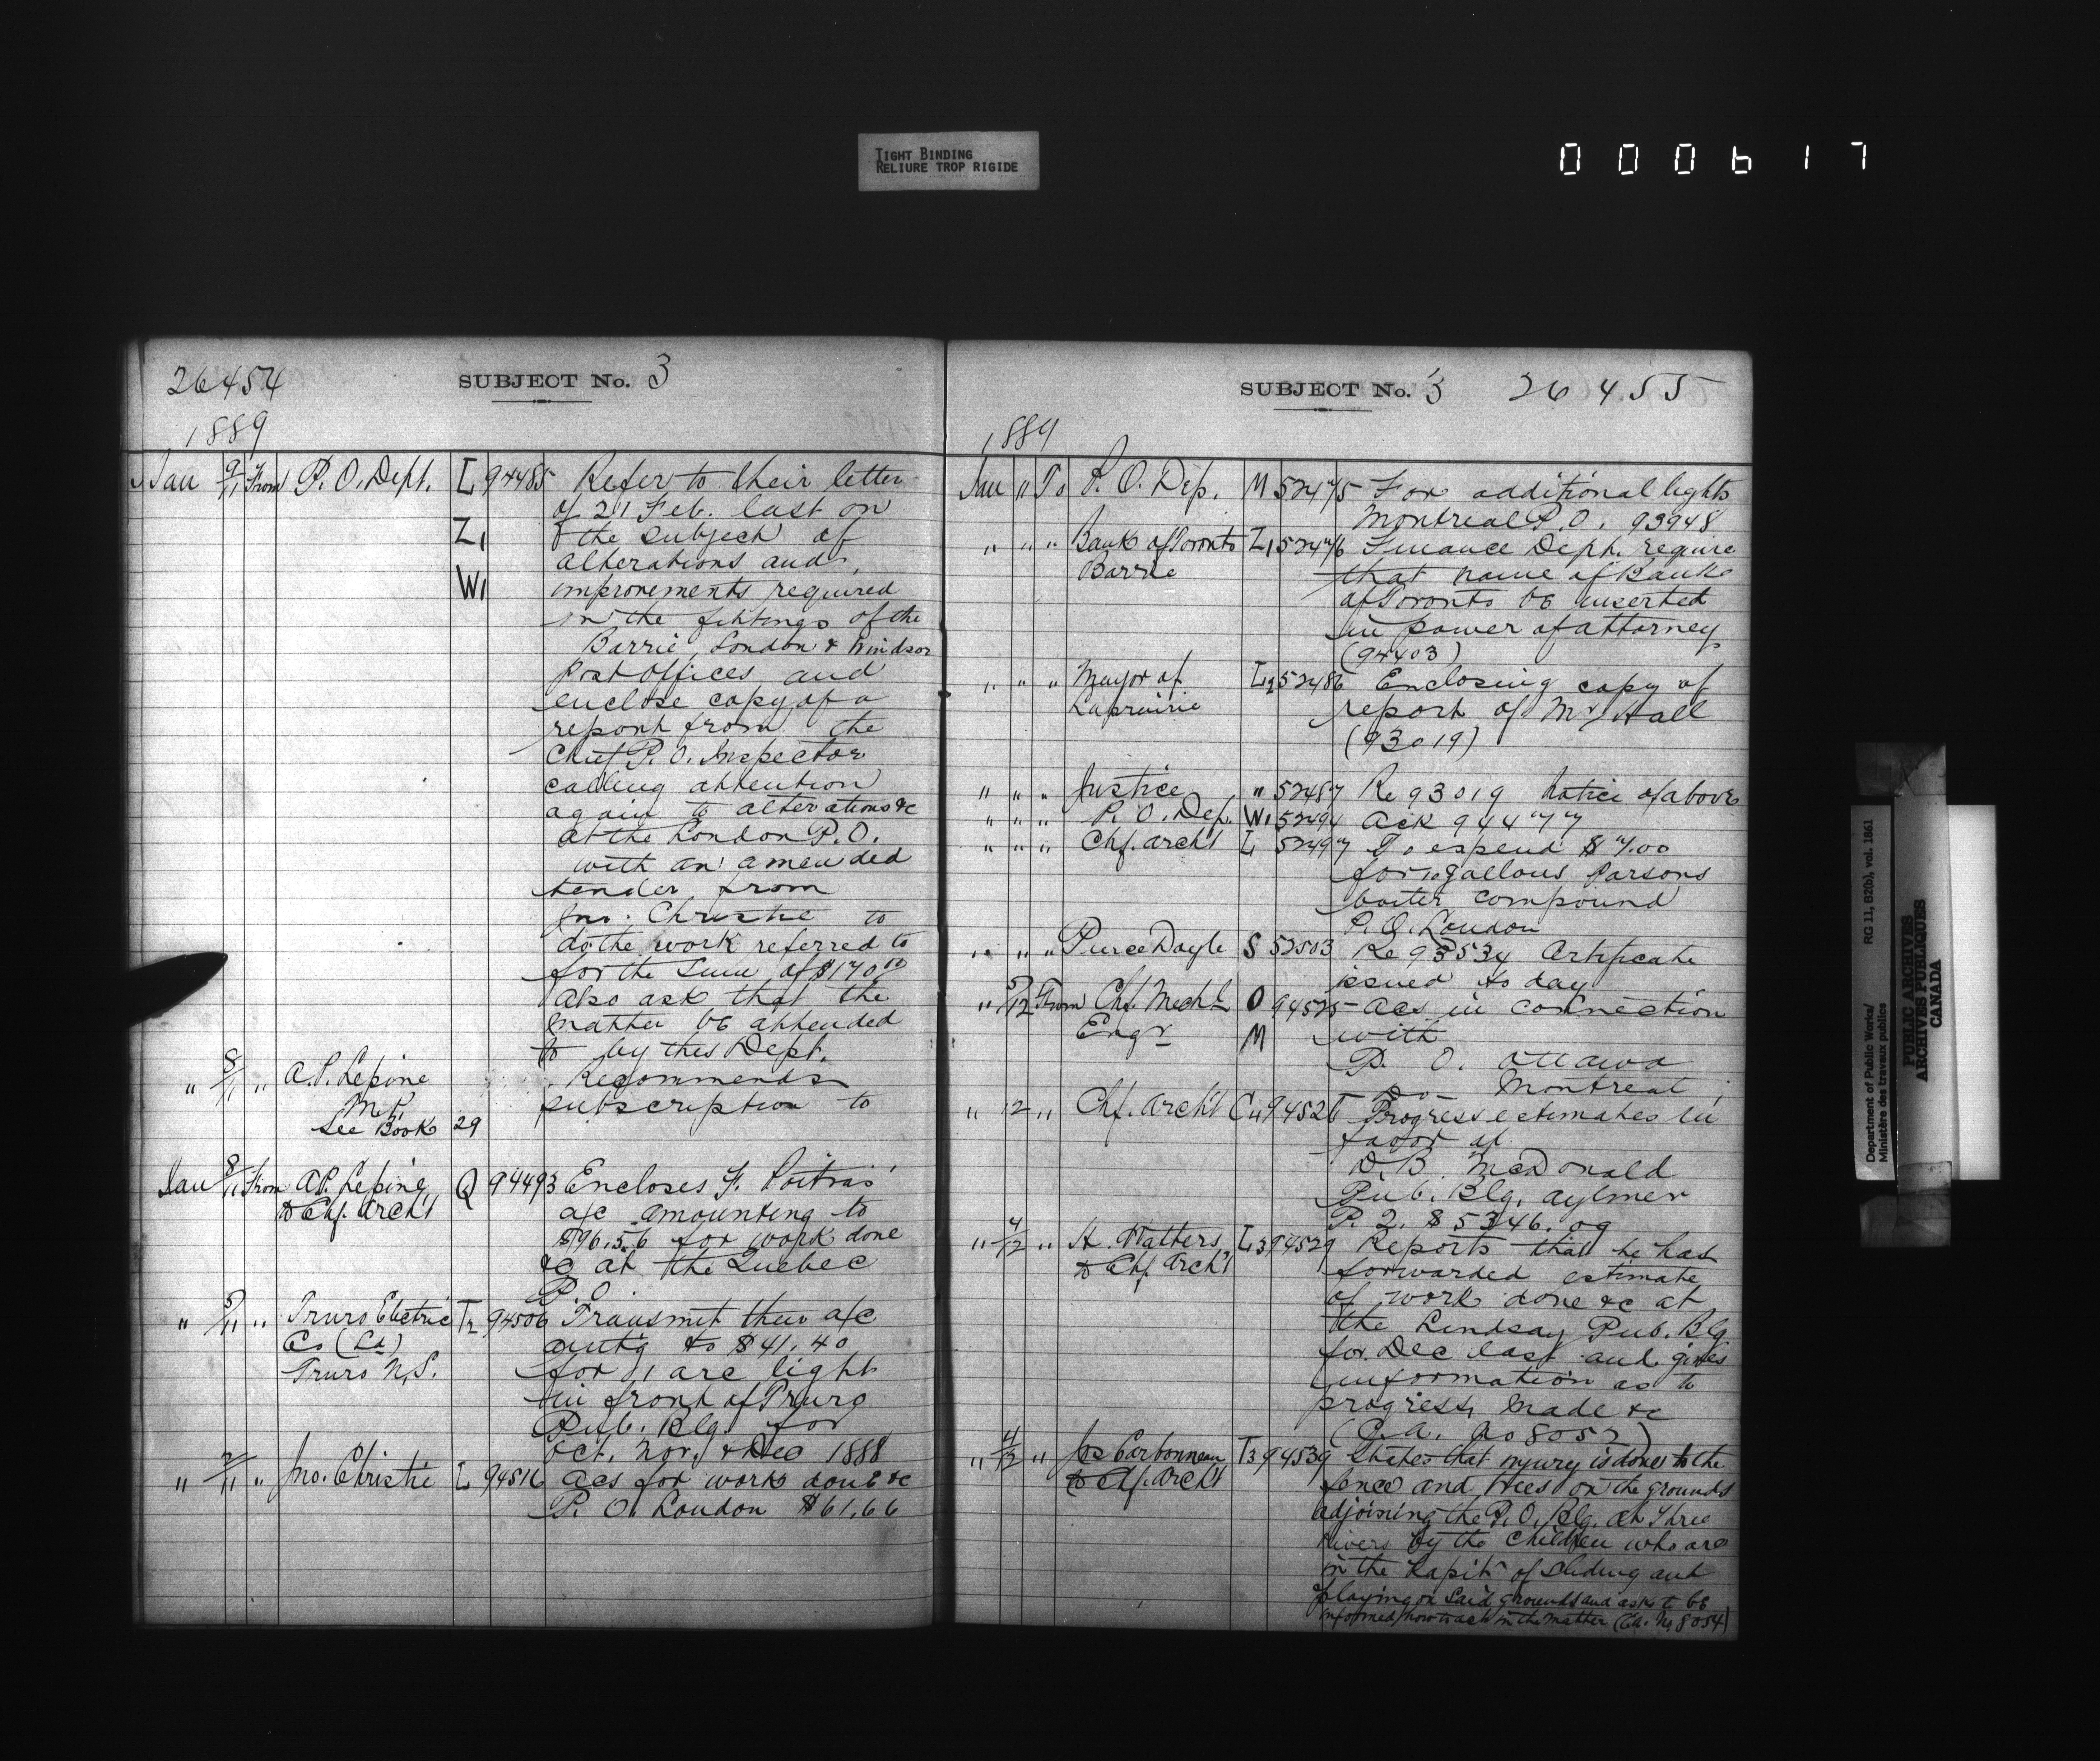 TIGHT BINDING
RELIURE TROP RIGIDE
000617
26454 SUBJECT No. 3
1889
Jan 9/11 From P. O. Dept. L 94485 Refer to their letter
of 21 Feb. last on
Z1 the subject of
alterations and
W1 improvements required
in the fittings of the
Barrie, London & Windsor
Post Offices and
enclose copy of a
report from the
Chief P. O. Inspector
calling attention
again to alterations &c
at the London P. O.
with an amended
tender from
Jno. Christie to
do the work referred to
for the sum of $170.00
Also ask that the
matter be attended
to by this Dept.
" 8/1 " A. P. Lepine Recommends
M.P. subscription to
See Book 29
Jan 8/11 From A P. Lepine Q 94493 Encloses F. Poitras'
to Chf. Archt a/c amounting to
$96.56 for work done
&c at the Quebec
P. O.
" 5/11 " Truro Electric T2 94506 Transmit their a/c
Co (Ld) amtg to $41.40
Truro N.S. for 1 arc light
in front of Truro
Pub. Blg. for
Oct. Nov. & Dec 1888
" 2/11 " Jno. Christie L 94516 Acs for work done &c
P. O. London $61.66
SUBJECT No. 3 26455
1889
Jan " To P. O. Dep. M 52475 For additional lights
Montreal P. O. 93948
" " " Bank of Toronto Z1 52476 Finance Dept. require
Barrie that name of Bank
of Toronto be inserted
in power of attorney
(94403)
" " " Mayor of L2 52486 Enclosing copy of
Laprairie report of Mr Hall
(93019)
" " " Justice " 52487 Re 93019 Notice of above
" " " P. O. Dep. W1 52494 Ack 94477
" " " Chf. Archt L 52497 To expend $7.00
for 10 gallons Parsons
boiler compound
P. O. London
" " " Pierce Doyle S 52503 Re 93534 Certificate
issued to day
" 5/12 From Chf. Mechl O 94525 Acs in connection
Engr M with
P. O. Ottawa
Do - Montreal
" 12 " Chf. Archt C4 94526 Progress estimates in
favor of
D. B. McDonald
Pub. Blg. Aylmer
P. 2. $5346.09
" 4/12 " A. Watters L3 94529 Reports that he has
to Chf Archt forwarded estimate
of work done &c at
the Lindsay Pub. Blg
for Dec last and gives
information as to
progress made &c
(C.A. No 8052)
" 4/12 " Jos Carbonneau T3 94539 States that injury is done to the
to Chf. Archt fence and trees on the grounds
adjoining the P. O. Blg. at Three
Rivers by the children who are
in the habit of sliding and
playing on said grounds and asks to be
informed how to act in the matter (C.A. No 8054)
Department of Public Works/ RG 11, B2(b), vol. 1861
Ministère des travaux publics
PUBLIC ARCHIVES
ARCHIVES PUBLIQUES
CANADA